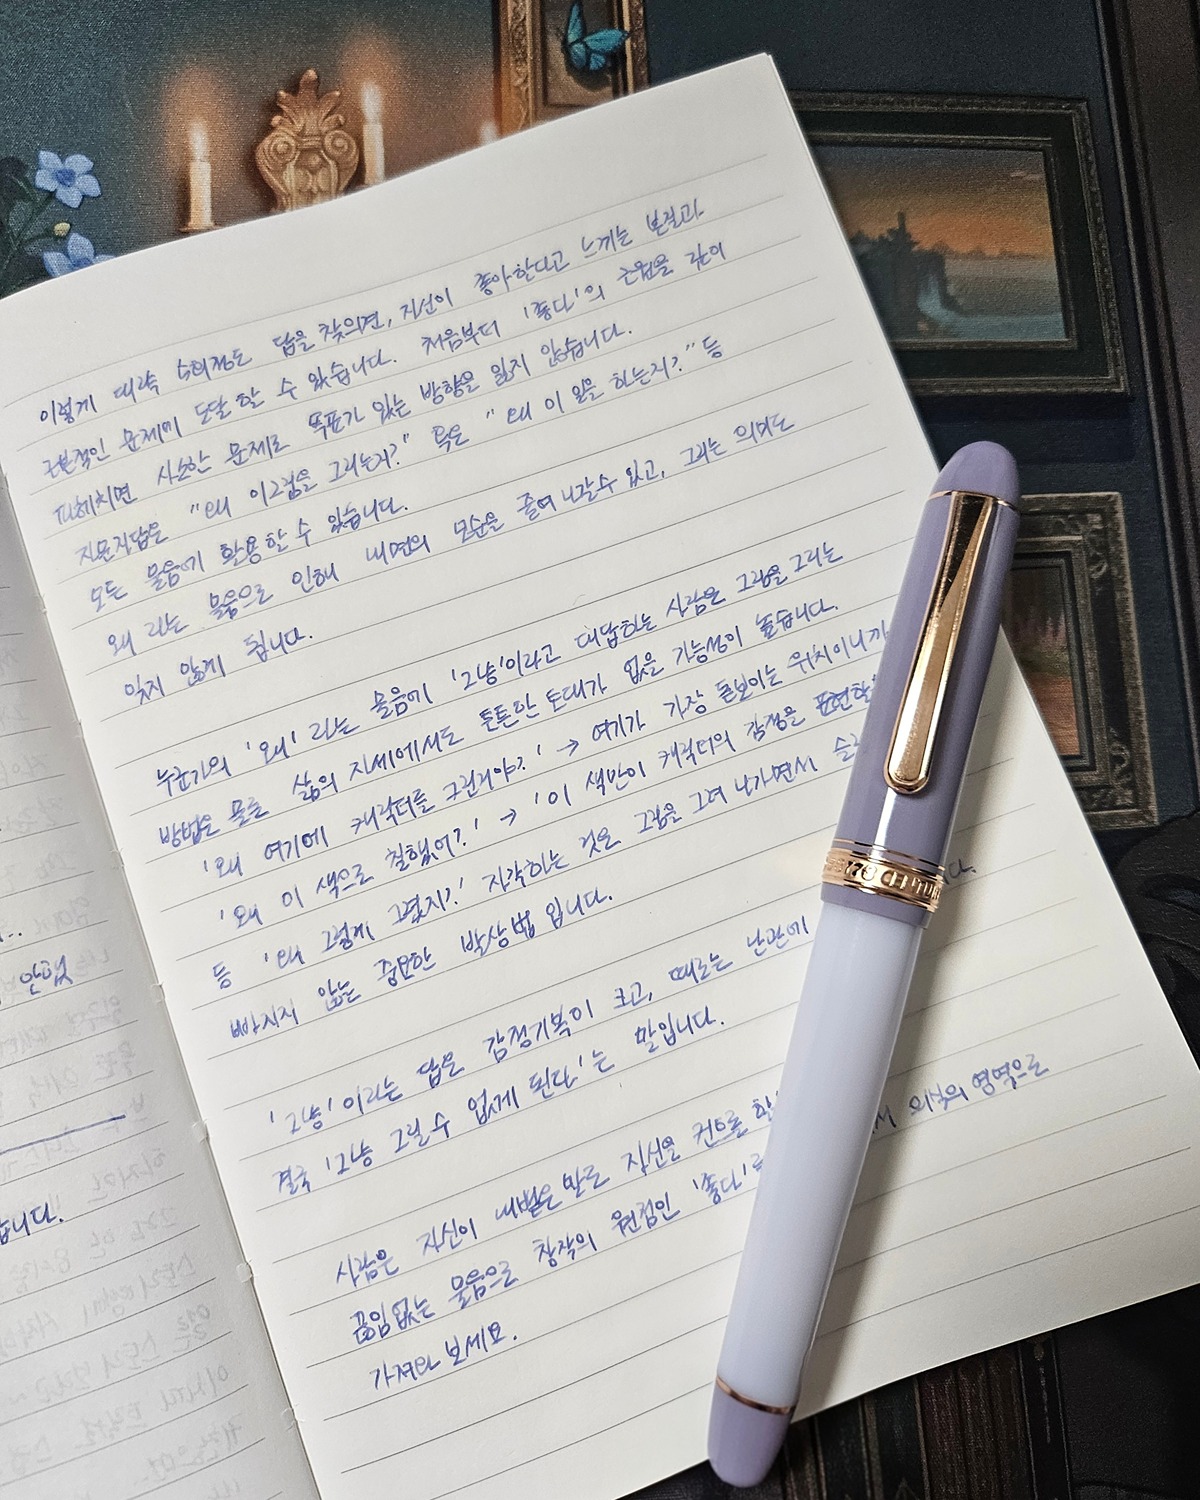 이렇게 대략 수회정도 답을 찾으면, 자신이 좋아한다고 느끼는 본질과
근본적인 문제에 도달할 수 있습니다. 처음부터 '좋다'의 근원을 깊이
파헤치면 사소한 문제로 목표가 있는 방향을 잃지 않습니다.
자문자답은 "왜 이그림을 그리는지?" 혹은 "왜 이 일을 하는지?" 등
모든 물음에 활용할 수 있습니다.
왜 라는 물음으로 인해 내면의 모순을 줄여 나갈수 있고, 그리는 의미도
잊지 않게 됩니다.
누군가의 '왜' 라는 물음에 '그냥'이라고 대답하는 사람은 그림을 그리는
방법은 물론 삶의 자세에서도 튼튼한 토대가 없을 가능성이 높습니다.
'왜 여기에 캐릭터를 그린거야?' → 여기가 가장 돋보이는 위치이니까
'왜 이 색으로 칠했어?' → '이 색만이 캐릭터의 감정을 표현할
등 '왜 그렇게 그렸지?' 자각하는 것은 그림을 그려 나가면서 슬
다.
빠지지 않는 중요한 발상법 입니다.
'그냥'이라는 답은 감정기복이 크고, 때로는 난관에
결국 '그냥 그릴수 없게 된다'는 말입니다.
사람은 자신이 내뱉은 말로 자신을 컨트롤 의식의 영역으로
끊임없는 물음으로 창작의 원점인 '좋다'
가져와 보세요.
안됩
습니다.
3776 CENTU